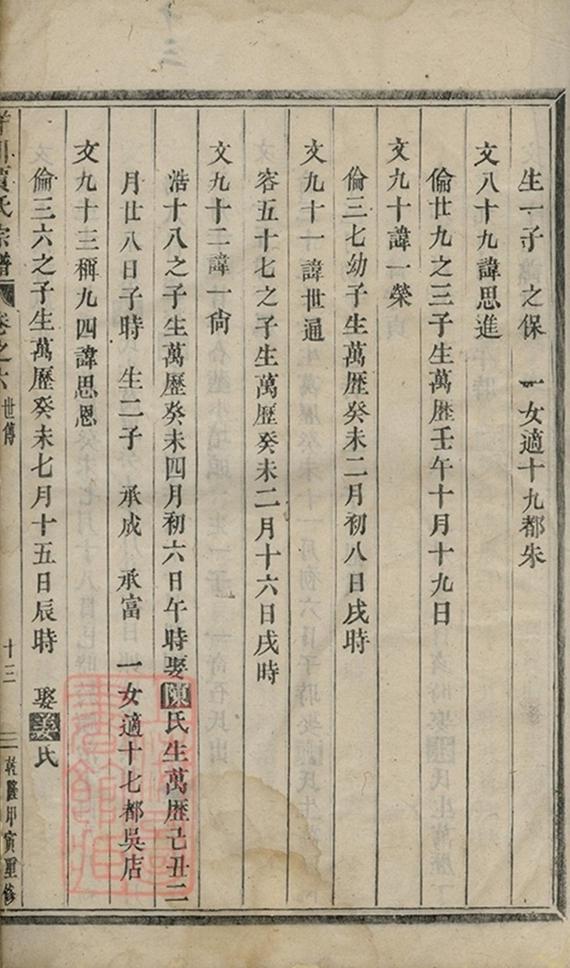 生一子 之保 一女適十九都朱
文八十九諱思進
倫廿九之三子生萬歷壬午十月十九日
文九十諱一榮
倫三七幼子生萬歷癸未二月初八日戌時
文九十一諱世通
容五十七之子生萬歷癸未二月十六日戌時
文九十二諱一尙
浩十八之子生萬歷癸未四月初六日午時娶陳氏生萬歷己丑二
月廿八日子時 生二子 承成 承富 一女適十七都吳店
文九十三稱九四諱思恩
倫三六之子生萬歷癸未七月十五日辰時 娶姜氏
氏宗譜 卷之六 世傳 十三 乾隆甲寅重修